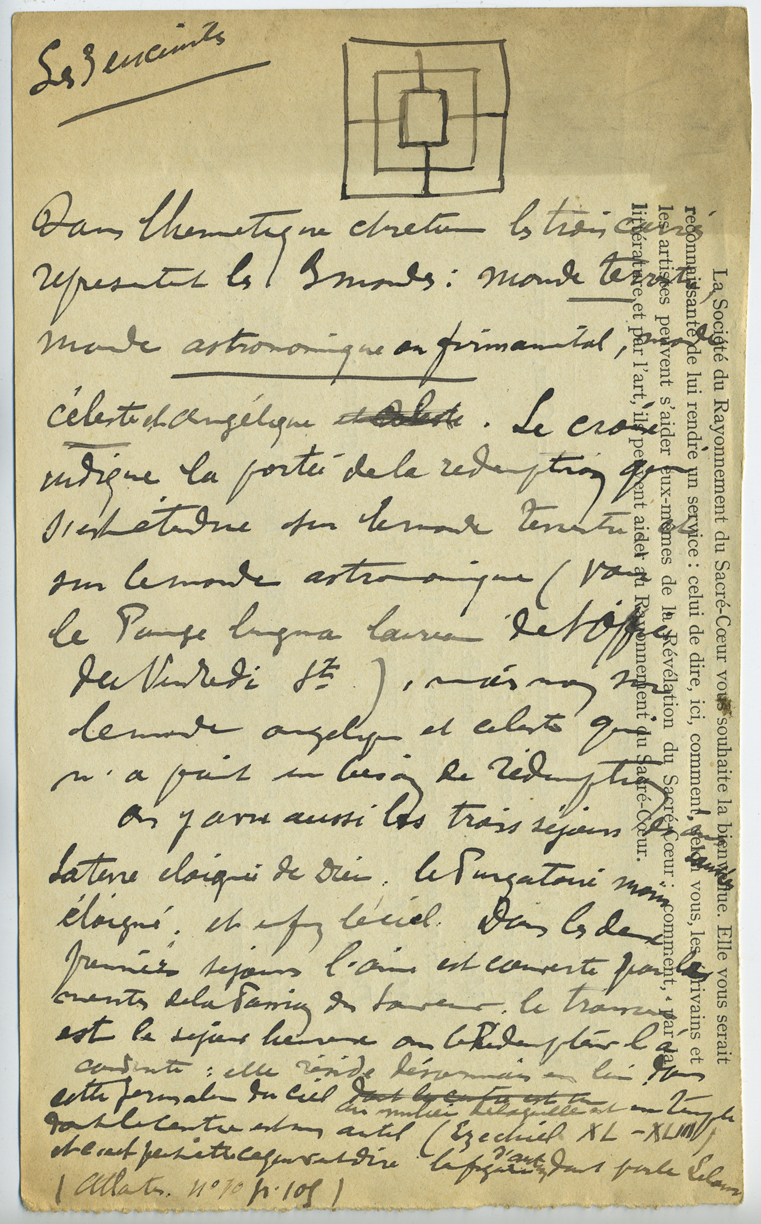 Les 3 enceintes
Dans l'hermetique chretien les trois carrés
representent les 3 mondes : monde terrestre,
monde astronomique ou firmamental, monde
céleste et angélique et céleste . Le croix
indique la portée de la redemption qui
s'est étendue sur le monde terrestre et
sur le monde astronomique ( voir
le Pange lingua lauream de l'office
du Vendredi St ) , mais non sur
le monde angelique et celeste qui
n'a point eu besoin de rédemption
On y a vu aussi les trois séjours
La terre eloignée de Dieu . le Purgatoire moins
éloigné . et enfin le ciel . Dans les deux
premiers sejours l'ame est couverte par les
merites de la Passion du Sauveur . le troisieme
est le sejour heureux ou le Rédempteur l'a
conduite : elle réside désormais en lui dans
cette Jerusalem du ciel au milieu de laquelle est un temple
dont le centre est un autel ( Ezechiel XL - XLIII )
et c'est peut etre ce que veut dire la figure dont parle
( Atlantis . n° 10 p. 109 )
La Société du Rayonnement du Sacré-Cœur vous souhaite la bienvenue. Elle vous serait
reconnaissante de lui rendre un service : celui de dire, ici, comment, selon vous, les écrivains et
les artistes peuvent s'aider eux-mêmes de la Révélation du Sacré-Cœur ; comment, par la
littérature et par l'art, ils peuvent aider au Rayonnement du Sacré-Cœur.